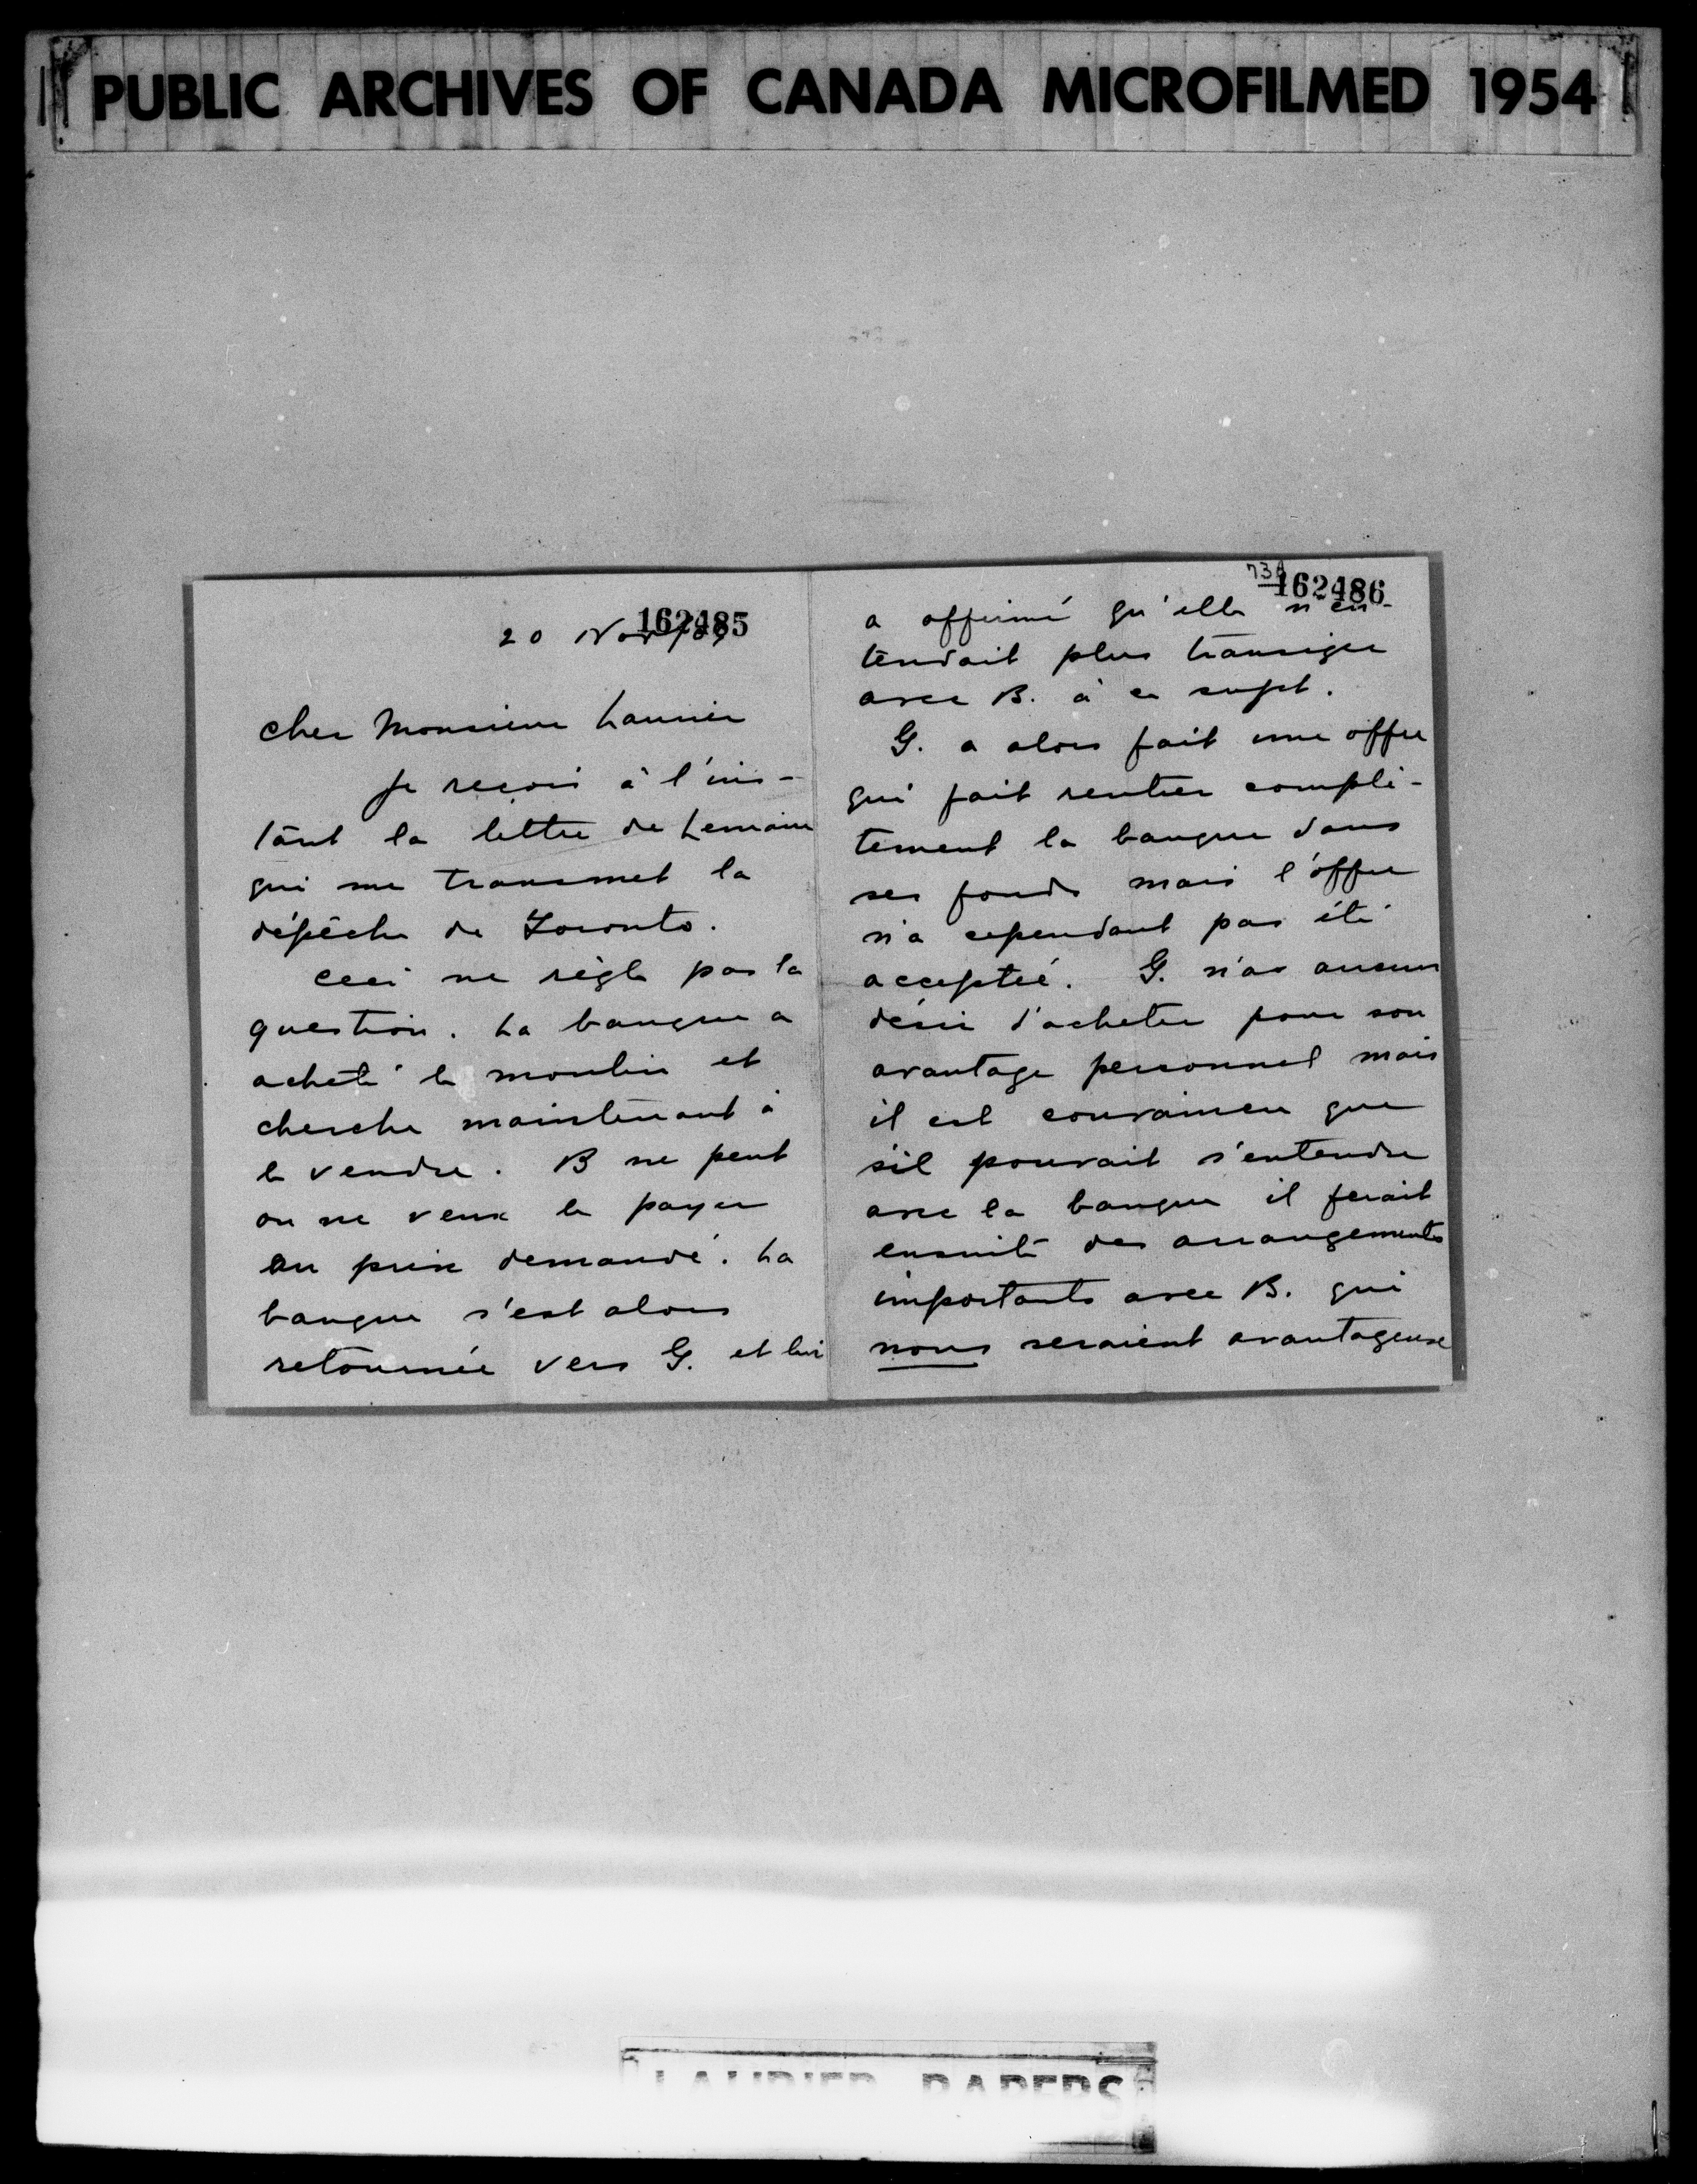 PUBLIC ARCHIVES OF CANADA MICROFILMED 1954
162485
20 Nov/
Cher Monsieur Laurier
Je reçois à l'ins-
tant la lettre de Lemaire
qui me transmet la
dépêche de Toronto.
Ceci ne règle pas la
question. La banque a
acheté le moulin et
cherche maintenant à
le vendre. B ne peut
ou ne veux le payer
au prix demandé. La
banque s'est alors
retournée vers G. et lui
73A
162486
a affirmé qu'elle n'en-
tendait plus transiger
avec B. à ce sujet.
G. a alors fait une offre
qui fait rentrer complè-
tement la banque dans
ses fonds mais l'offre
n'a cependant pas été
acceptée. G. n'as aucun
désir d'acheter pour son
avantage personnel mais
il est convaincu que
s'il pouvait s'entendre
avec la banque il ferait
ensuite des arrangements
importants avec B. qui
nous seraient avantageuse
LAURIER PAPERS